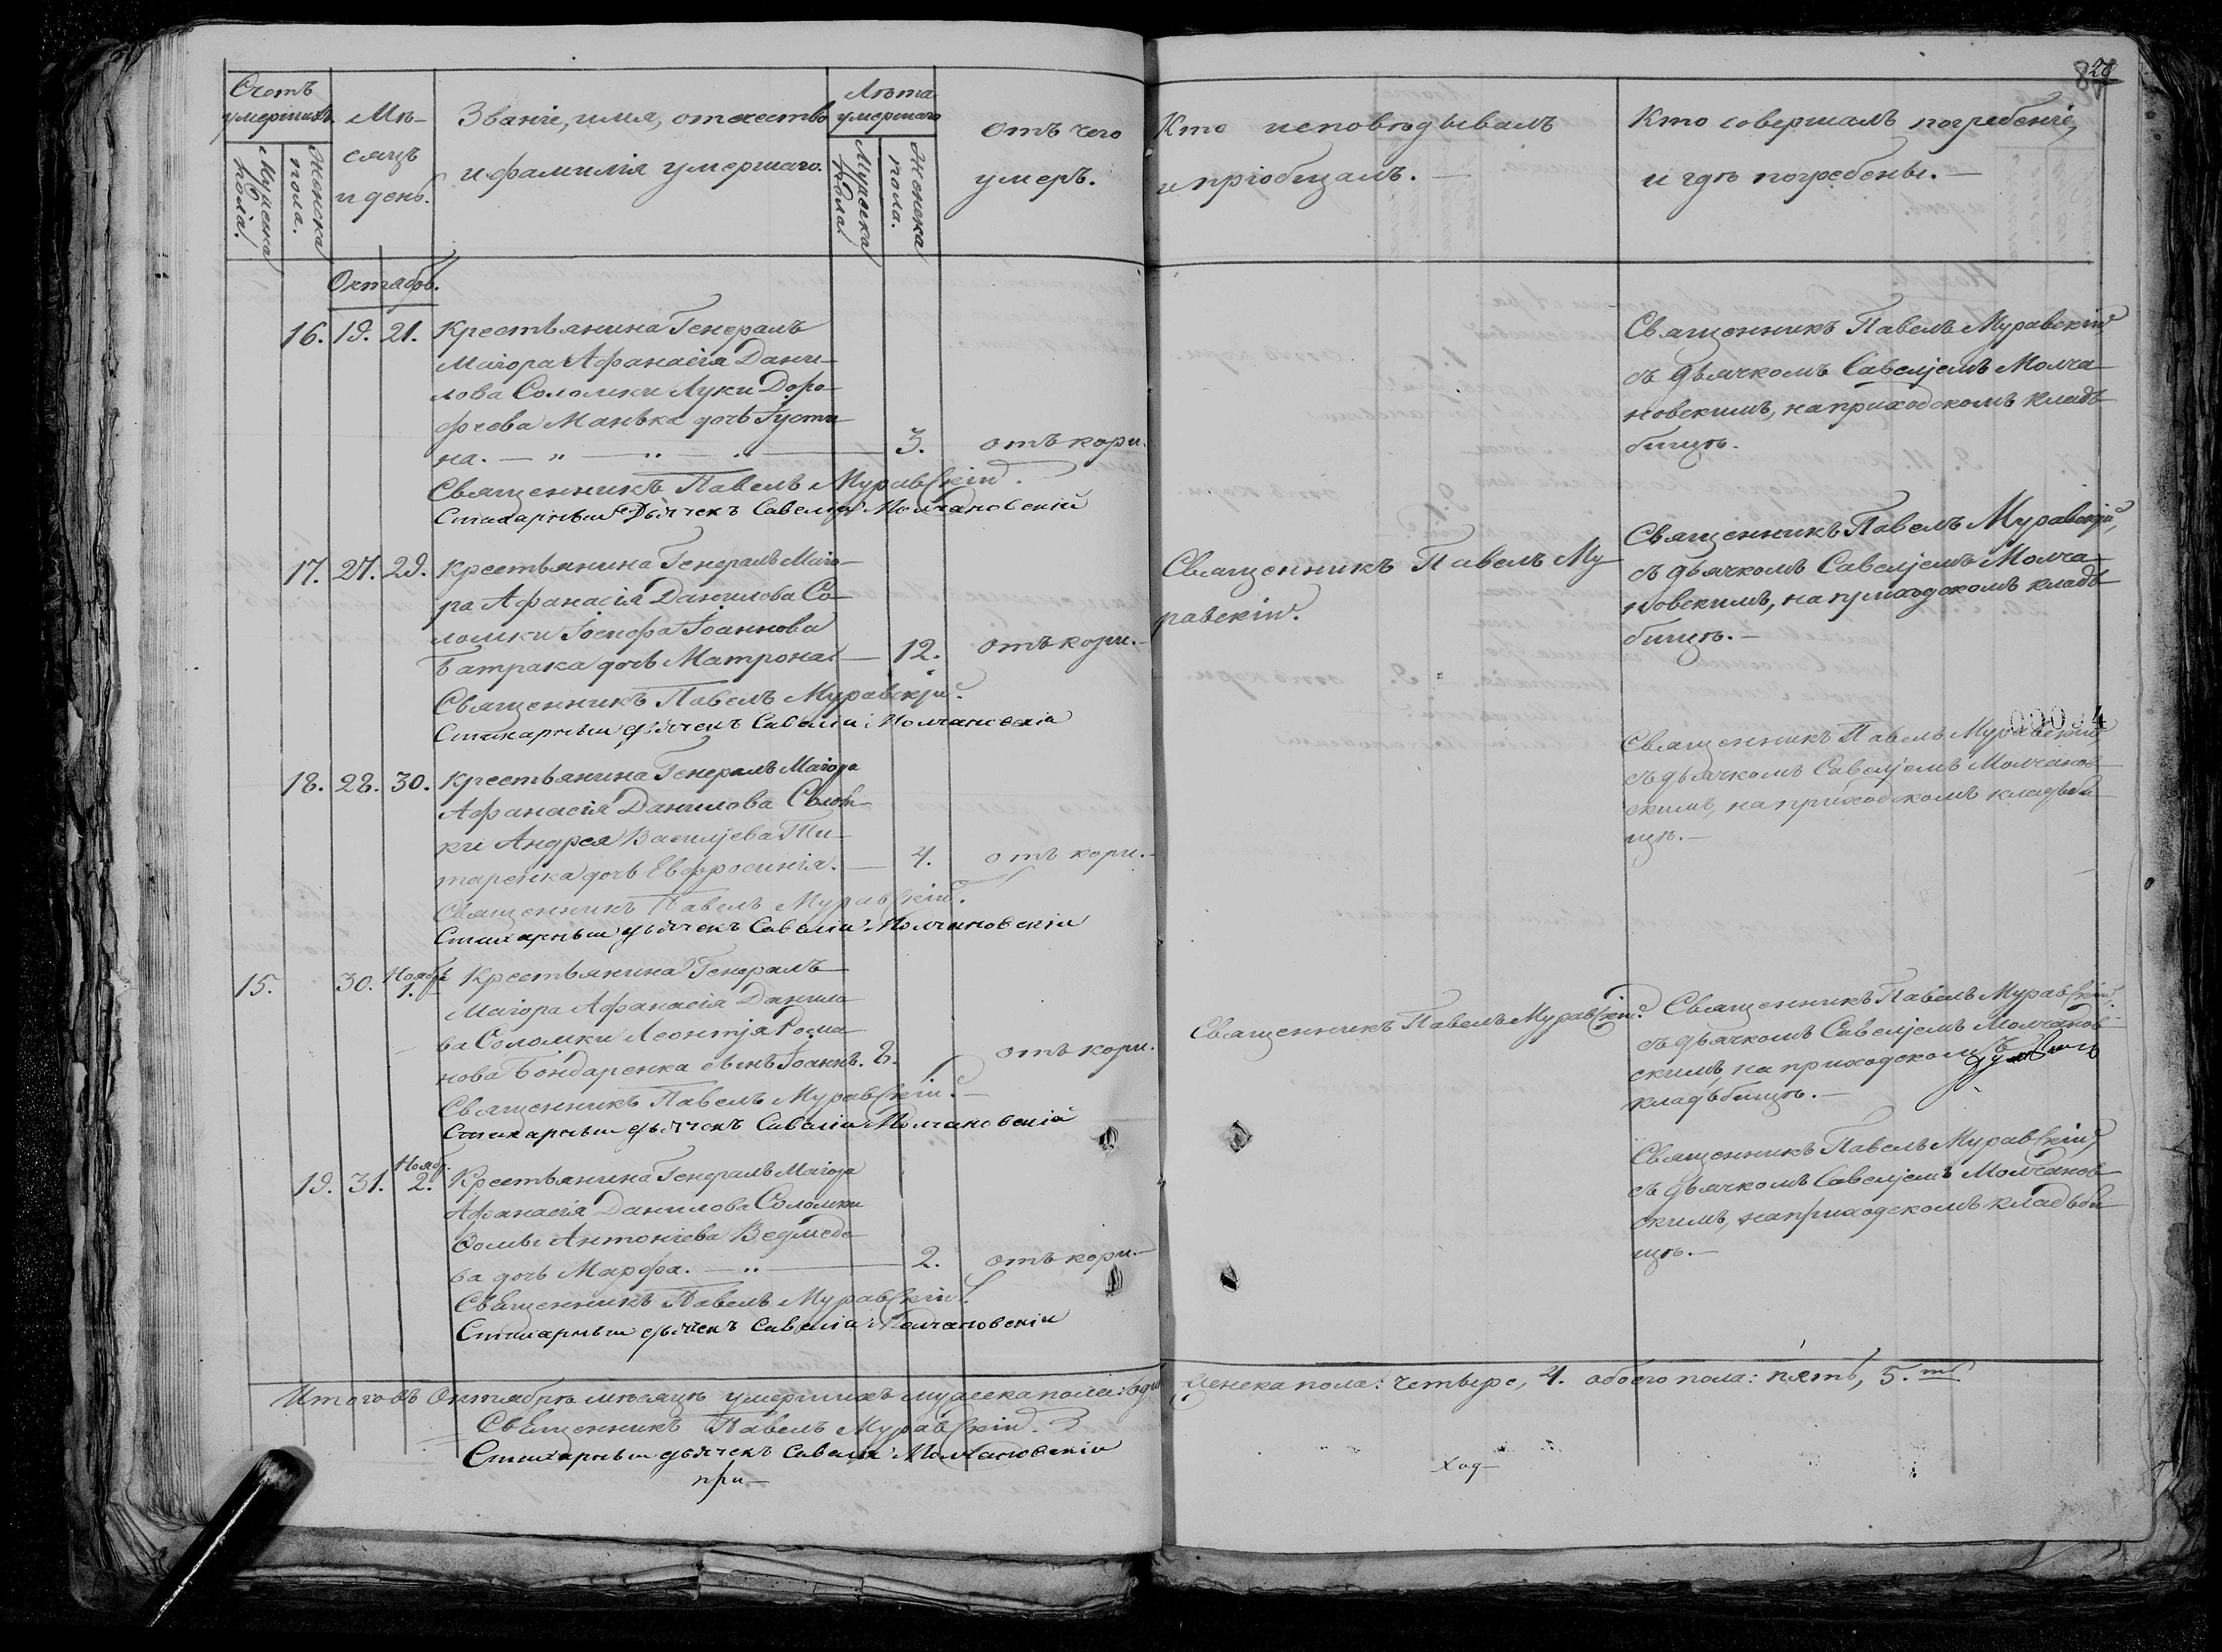 Счетъ умершихъ
Мужеска пола.
Женска пола.
Мѣ-
сяцъ
и день.
Званіе, имя, отчество
и фамилія умершаго.
Лѣта умершаго
Мужеска пола.
Женска пола.
Отъ чего
умеръ.
Кто исповѣдывалъ
и пріобщалъ. —
Кто совершалъ погребеніе,
и гдѣ погребены. —
Октябрь.
16. 19. 21. Крестьянина Генералъ
Маіора Афанасія Дани-
лова Соломки Луки Доро-
феева Манька дочь Іусти-
на. — „ — „ — „ — 3. отъ кори.
Священникъ Павелъ Муравскій.
Стихарный Дьячекъ Савелій Молчановскій
Священникъ Павелъ Муравскій
съ дьячкомъ Савеліемъ Молча-
новскимъ, на приходскомъ кладъ-
бищѣ.
17. 27. 29. Крестьянина Генералъ Маіо-
ра Афанасія Данилова Со-
ломки Іосифа Іоаннова
Батрака дочь Матрона. — 12. отъ кори. —
Священникъ Павелъ Муравскій.
Стихарный дьячекъ Савелій Молчановскій
Священникъ Павелъ Му-
равскій.
Священникъ Павелъ Муравскій,
съ дьячкомъ Савеліемъ Молча-
новскимъ, на приходскомъ кладъ-
бищѣ. —
18. 28. 30. Крестьянина Генералъ Маіора
Афанасія Данилова Солом-
ки Андрея Васильева Ти-
таренка дочь Евфросинія. — 4. отъ кори. —
Священникъ Павелъ Муравскій.
Стихарный дьячекъ Савелій Молчановскій
Священникъ Павелъ Муравскій,
съ дьячкомъ Савеліемъ Молчанов-
скимъ, на приходскомъ кладъби-
щѣ. —
15. 30. Ноябрь 1. Крестьянина Генералъ
Маіора Афанасія Данило-
ва Соломки Леонтія Рома-
нова Бондаренка сынъ Іоаннъ. 8. отъ кори.
Священникъ Павелъ Муравскій. —
Стихарный дьячекъ Савелій Молчановскій
Священникъ Павелъ Муравскій.
Священникъ Павелъ Муравскій.
съ дьячкомъ Савеліемъ Молчанов-
скимъ, на приходскомъ
кладъбищѣ. —
19. 31. Ноябр. 2. Крестьянина Генералъ Маіора
Афанасія Данилова Соломки
Фомы Антоніева Ведмеде-
ва дочь Марфа. — „ — 2. отъ кори. —
Священникъ Павелъ Муравскій.
Стихарный дьячекъ Савелій Молчановскій
Священникъ Павелъ Муравскій,
съ дьячкомъ Савеліемъ Молчанов-
скимъ, на приходскомъ кладъби-
щѣ. —
Итого въ Октябрѣ мѣсяцѣ умершихъ мужеска пола: женска пола: четыре, 4. обоего пола: пять, 5.
Священникъ Павелъ Муравскій.
Стихарный дьячекъ Савелій Молчановскій
при-
ход-